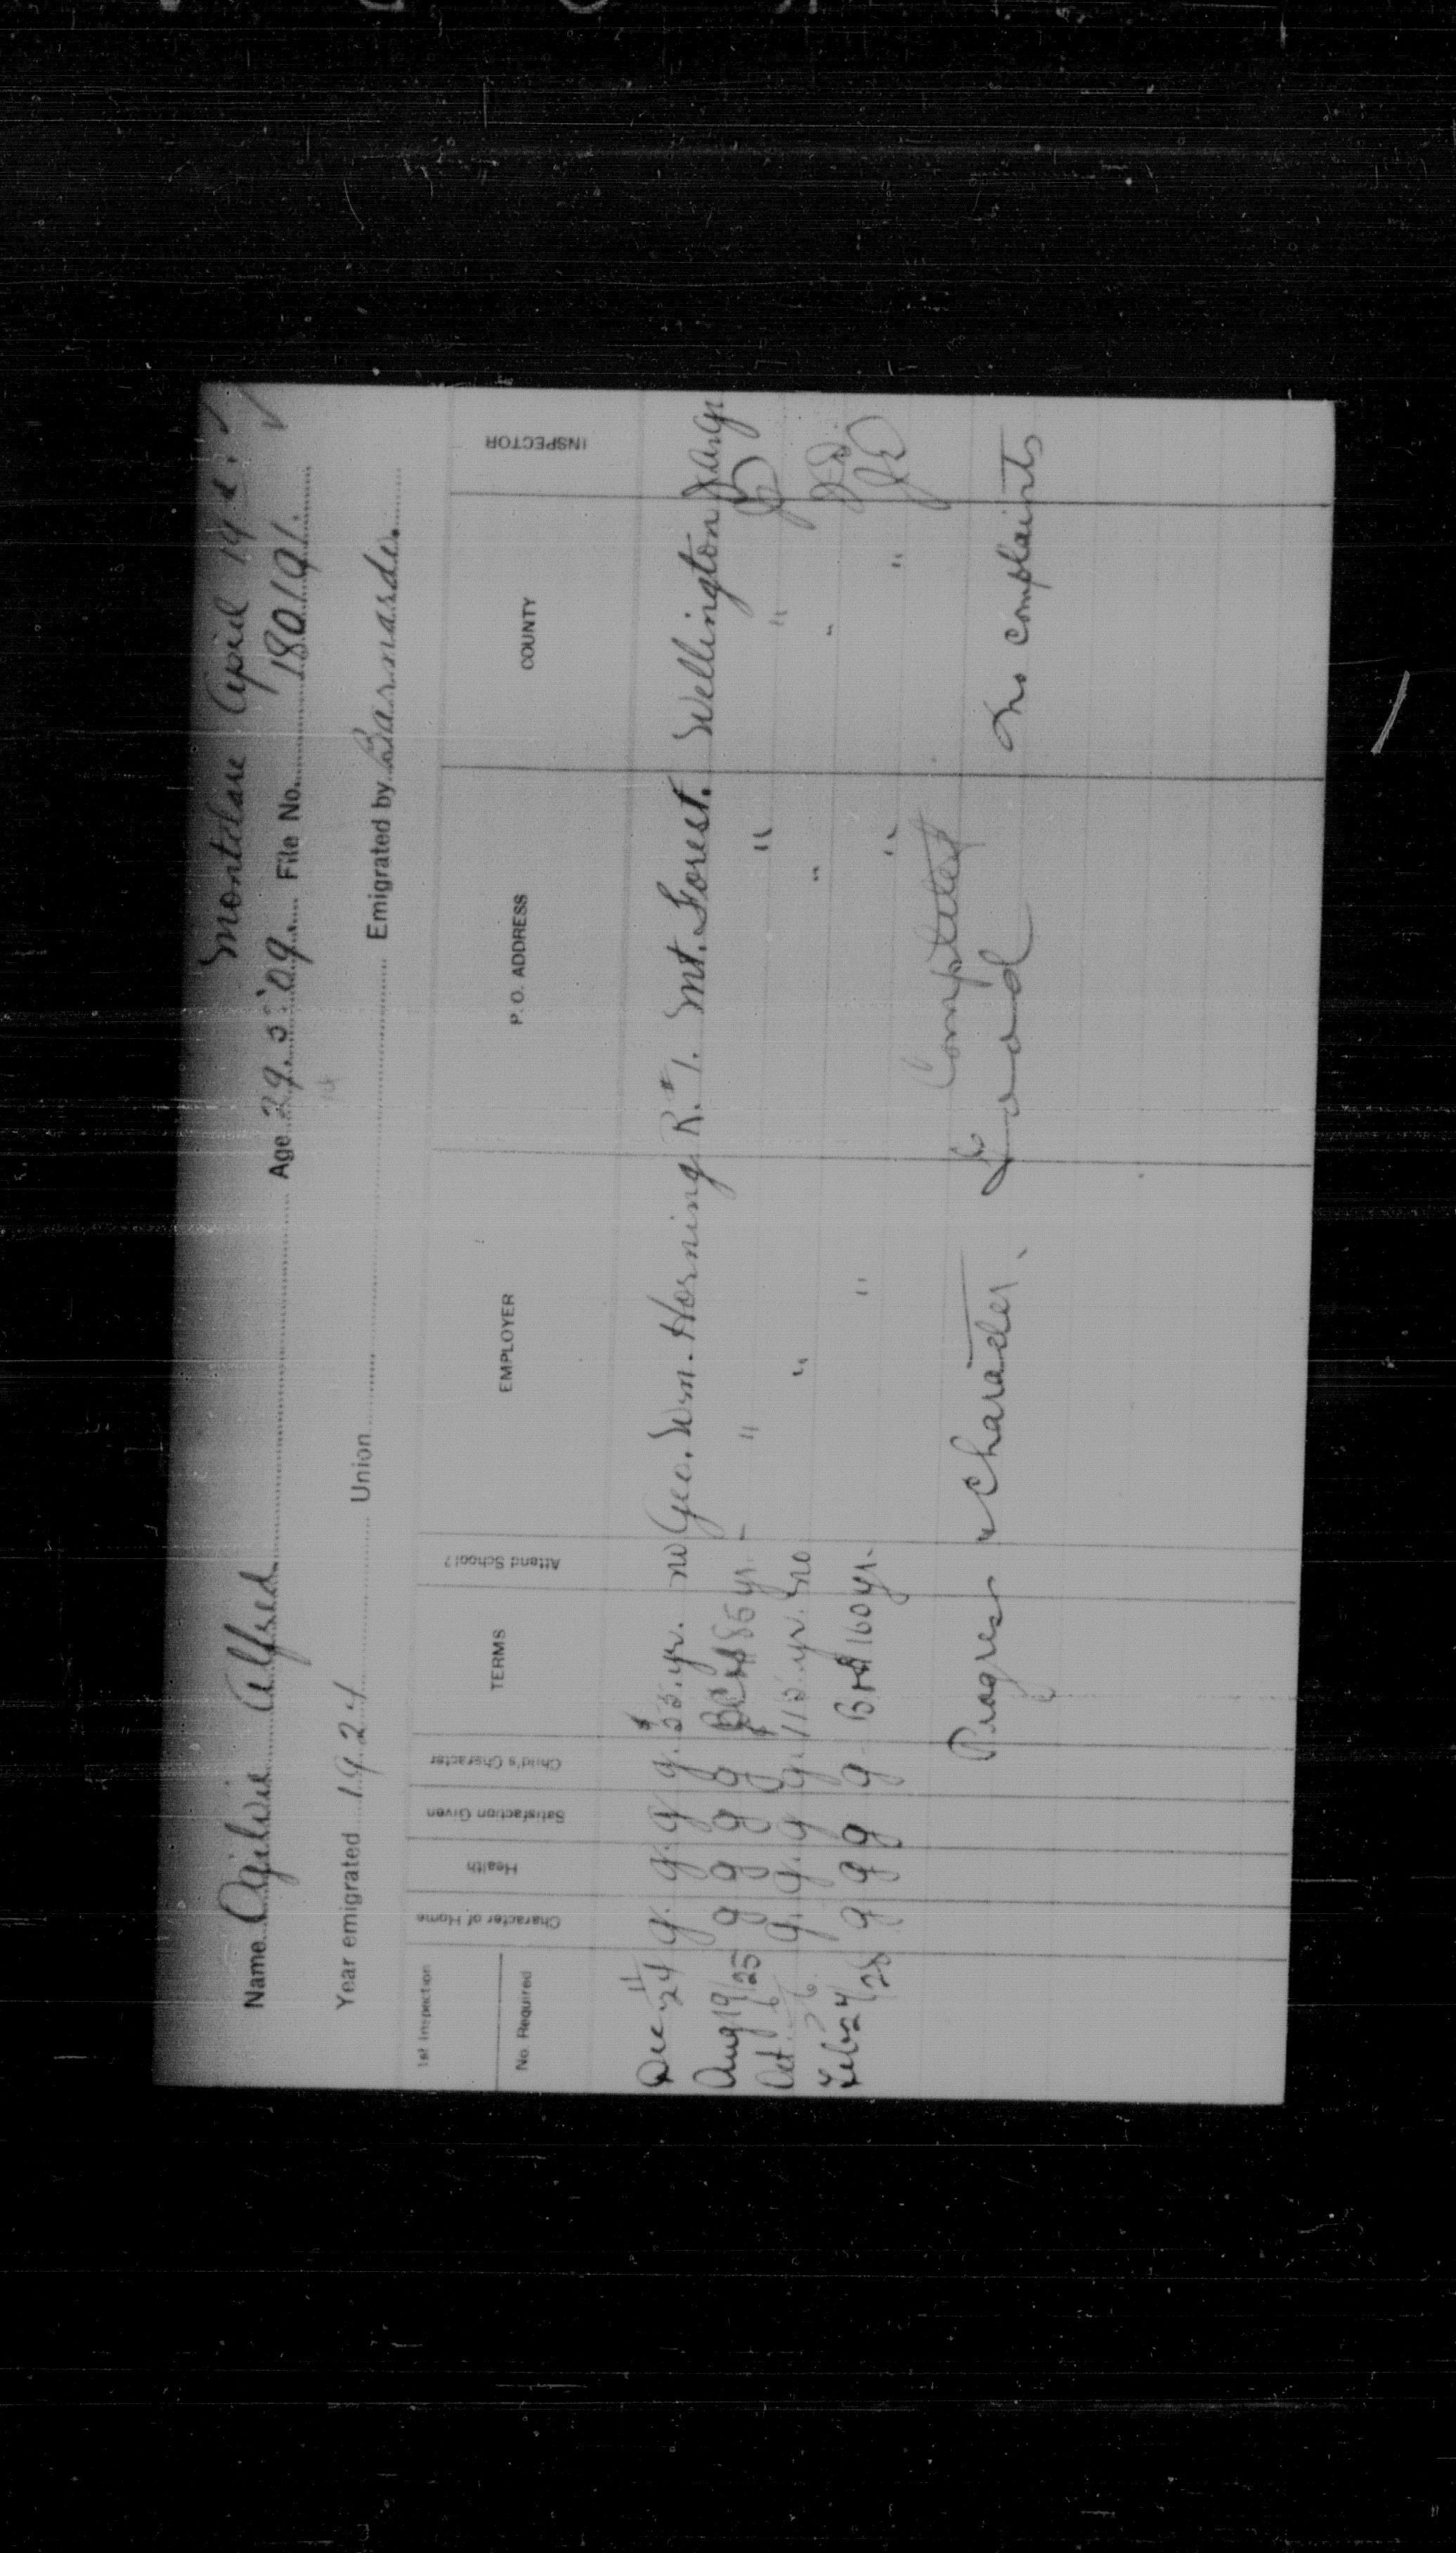 Montclare April 19
Name Ogilvie Alfred Age 29.5.'09 File No. 18019
Year emigrated 1924 Union Emigrated by Barnardo.
1st Inspection
No. Required
Character of Home
Health
Satisfaction Given
Child's Character
TERMS
Attend School?
EMPLOYER
P. O. ADDRESS
COUNTY
INSPECTOR
Dec 11/24 g. g. g. g. $55. yr. no Geo. Wm. Horning R.#1. Mt. Forest. Wellington
Aug 19/25 g g g g 85 yr. - " " "
Oct. 6 26. g. g. g g. $115. yr. no " " " JED
Feb 24/28 g g g g B + 160 yr. " " " JED
Completed
Progress & Character. Good No complaints